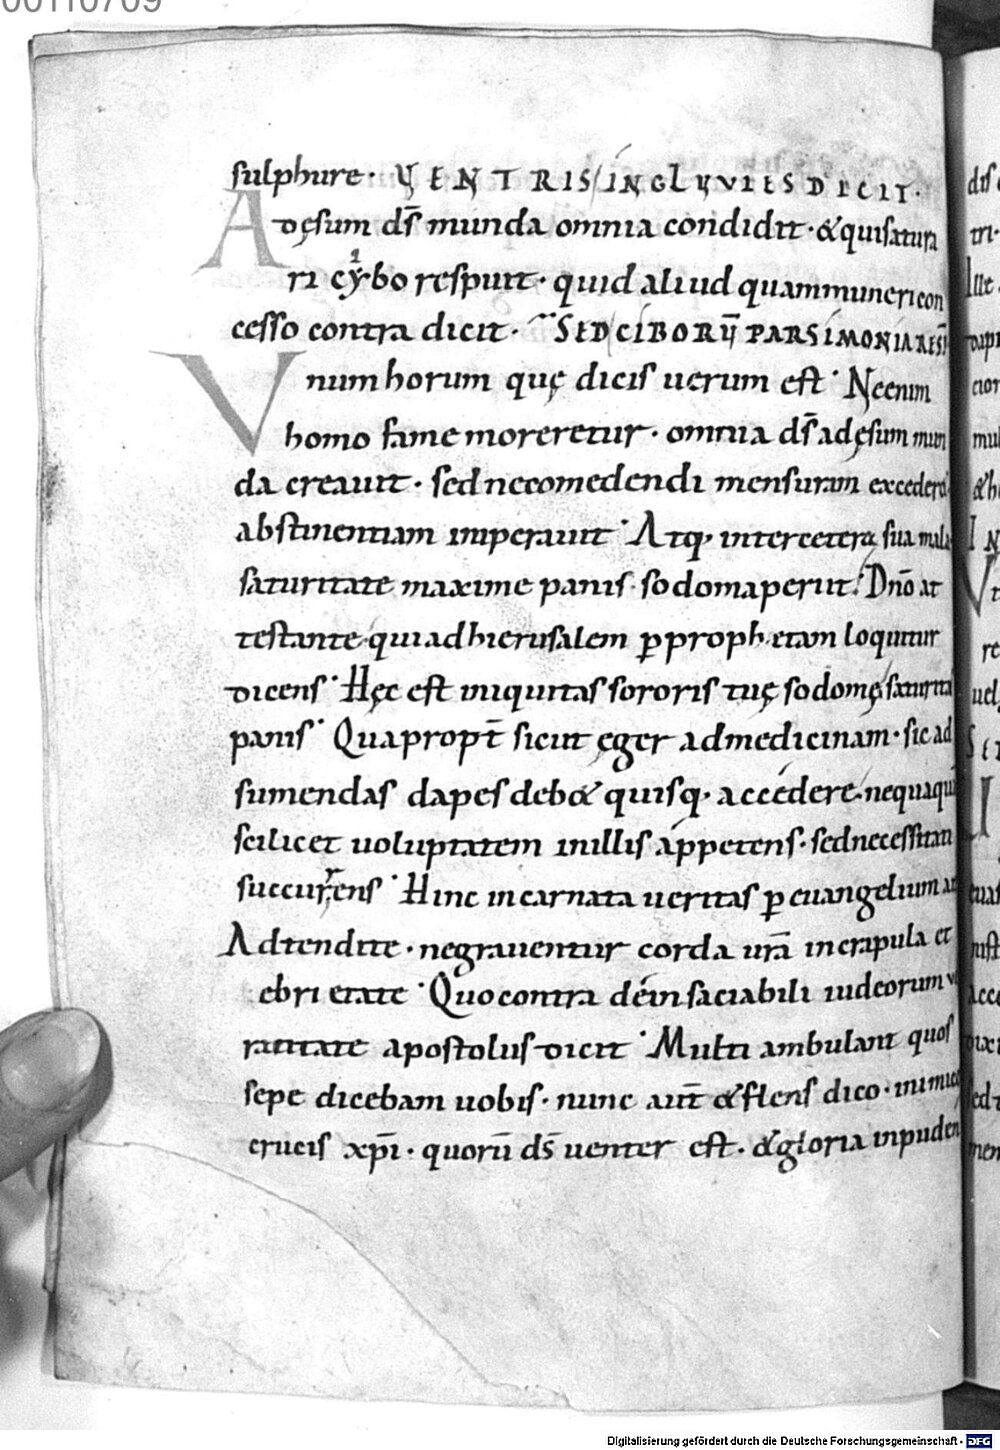 00110709
sulphure · VENTRIS INGLVVIES DICIT ·
Ad ęsum ds̄ munda omnia condidit · & qui satura
ri cybo respuit · quid aliud quam muneri con
cesso contra dicit · SED CIBORV̄ PARSIMONIA RES
Vnum horum quę dicis uerum est · Ne enim
homo fame moreretur · omnia ds̄ ad ęsum mun
da creauit · sed ne comedendi mensuram excederet
abstinentiam imperauit · Atq· inter cetera sua mala
saturitate maxime panis · sodoma periit · Dn̄o at
testante qui ad hierusalem p̱ prophetam loquitur
dicens · Hęc est iniquitas sororis tuę sodomę saturita
panis · Quapropt̄ sicut ęger ad medicinam · sic ad
sumendas dapes deb& quisq· accedere · nequaquā
scilicet uoluptatem in illis appetens · sed necessitati
succurrens · Hinc incarnata ueritas p̱ euangelium ait
Adtendite · ne grauentur corda ur̄a in crapula et
ebrietate · Quo contra de insaciabili iudeorum vo
racitate apostolus dicit · Multi ambulant quos
sepe dicebam uobis · nunc aut̄ & flens dico · inimicos
crucis xp̄i · quorū ds̄ uenter est · & gloria in puden
Digitalisierung gefördert durch die Deutsche Forschungsgemeinschaft - DFG